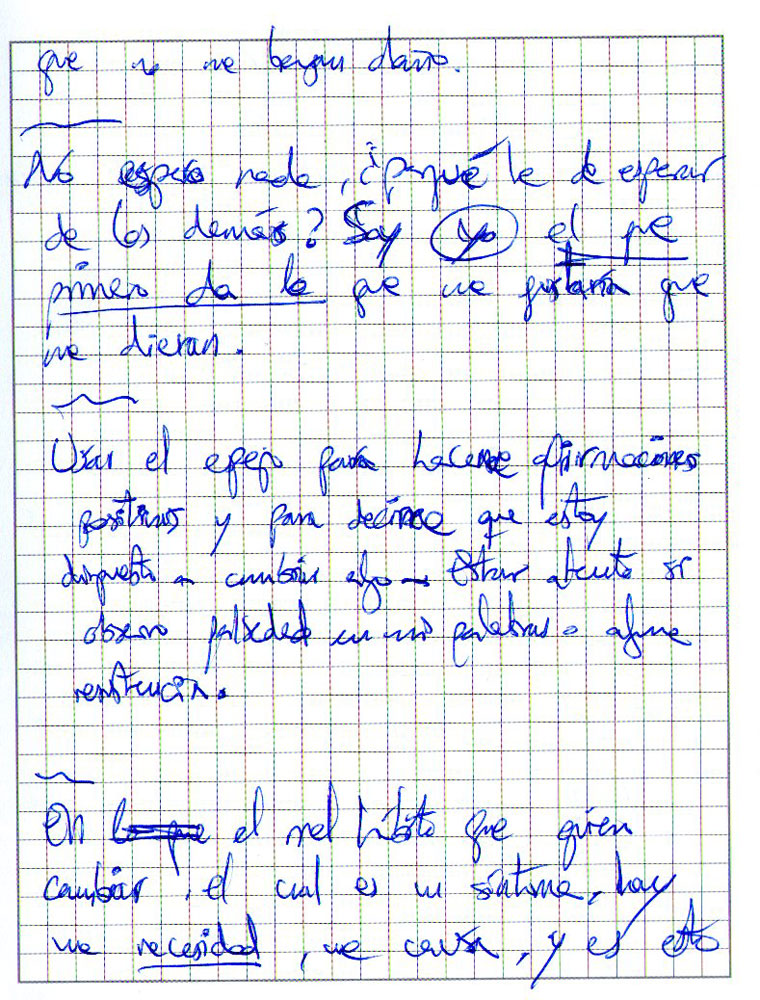 que no me hagan daño.
No espero nada, ¿porqué he de esperar
de los demás? Soy yo el que
primero da lo que me gustaría que
me dieran.
Usar el espejo para hacerme afirmaciones
positivas y para decirme que estoy
dispuesto a cambiar algo → Estar atento si
observo falsedad en mis palabras o alguna
resistencia.
En el mal hábito que quiero
cambiar, el cual es un síntoma, hay
una necesidad, una causa, y es esto